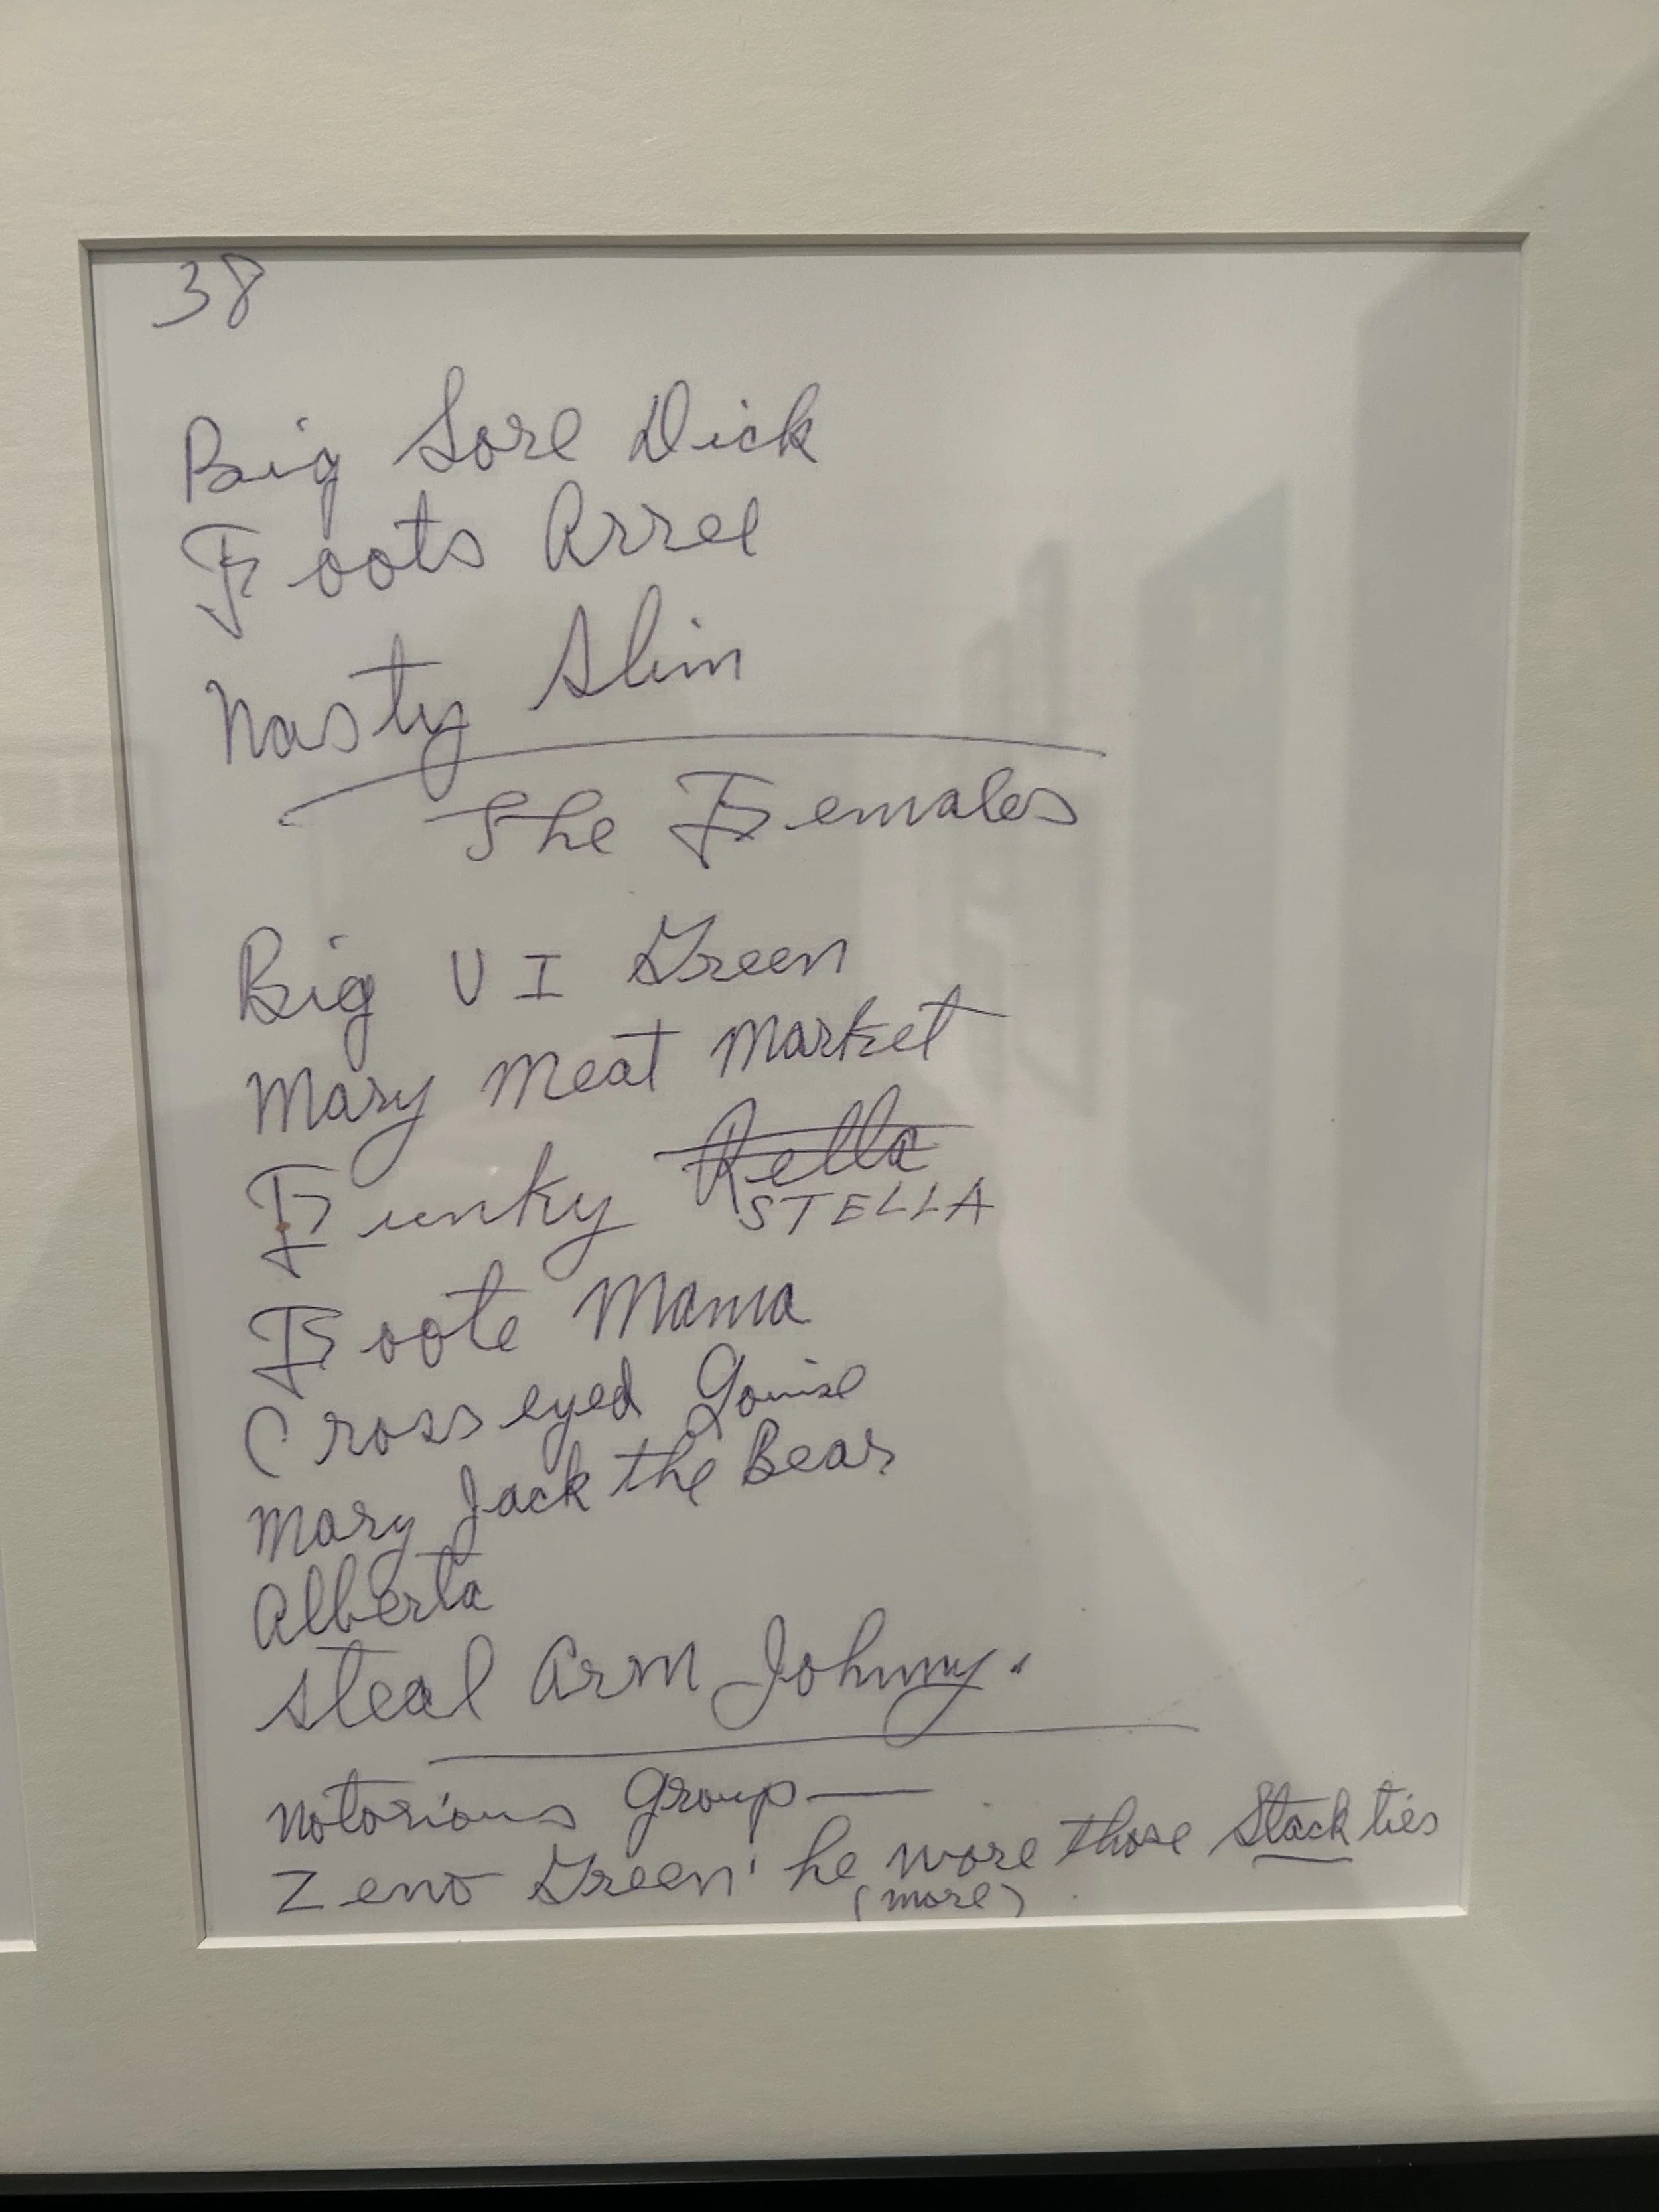 38
Big Sore Dick
Foots Arrel
Nasty Slim
The Females
Big VI Green
Mary Meat Market
Funky Rella
STELLA
Foote Mama
Cross eyed Louise
Mary Jack the Bear
Alberta
Steal Arm Johnny.
Notorious Group—
Zeno Green' he wore those Stack ties
(more)